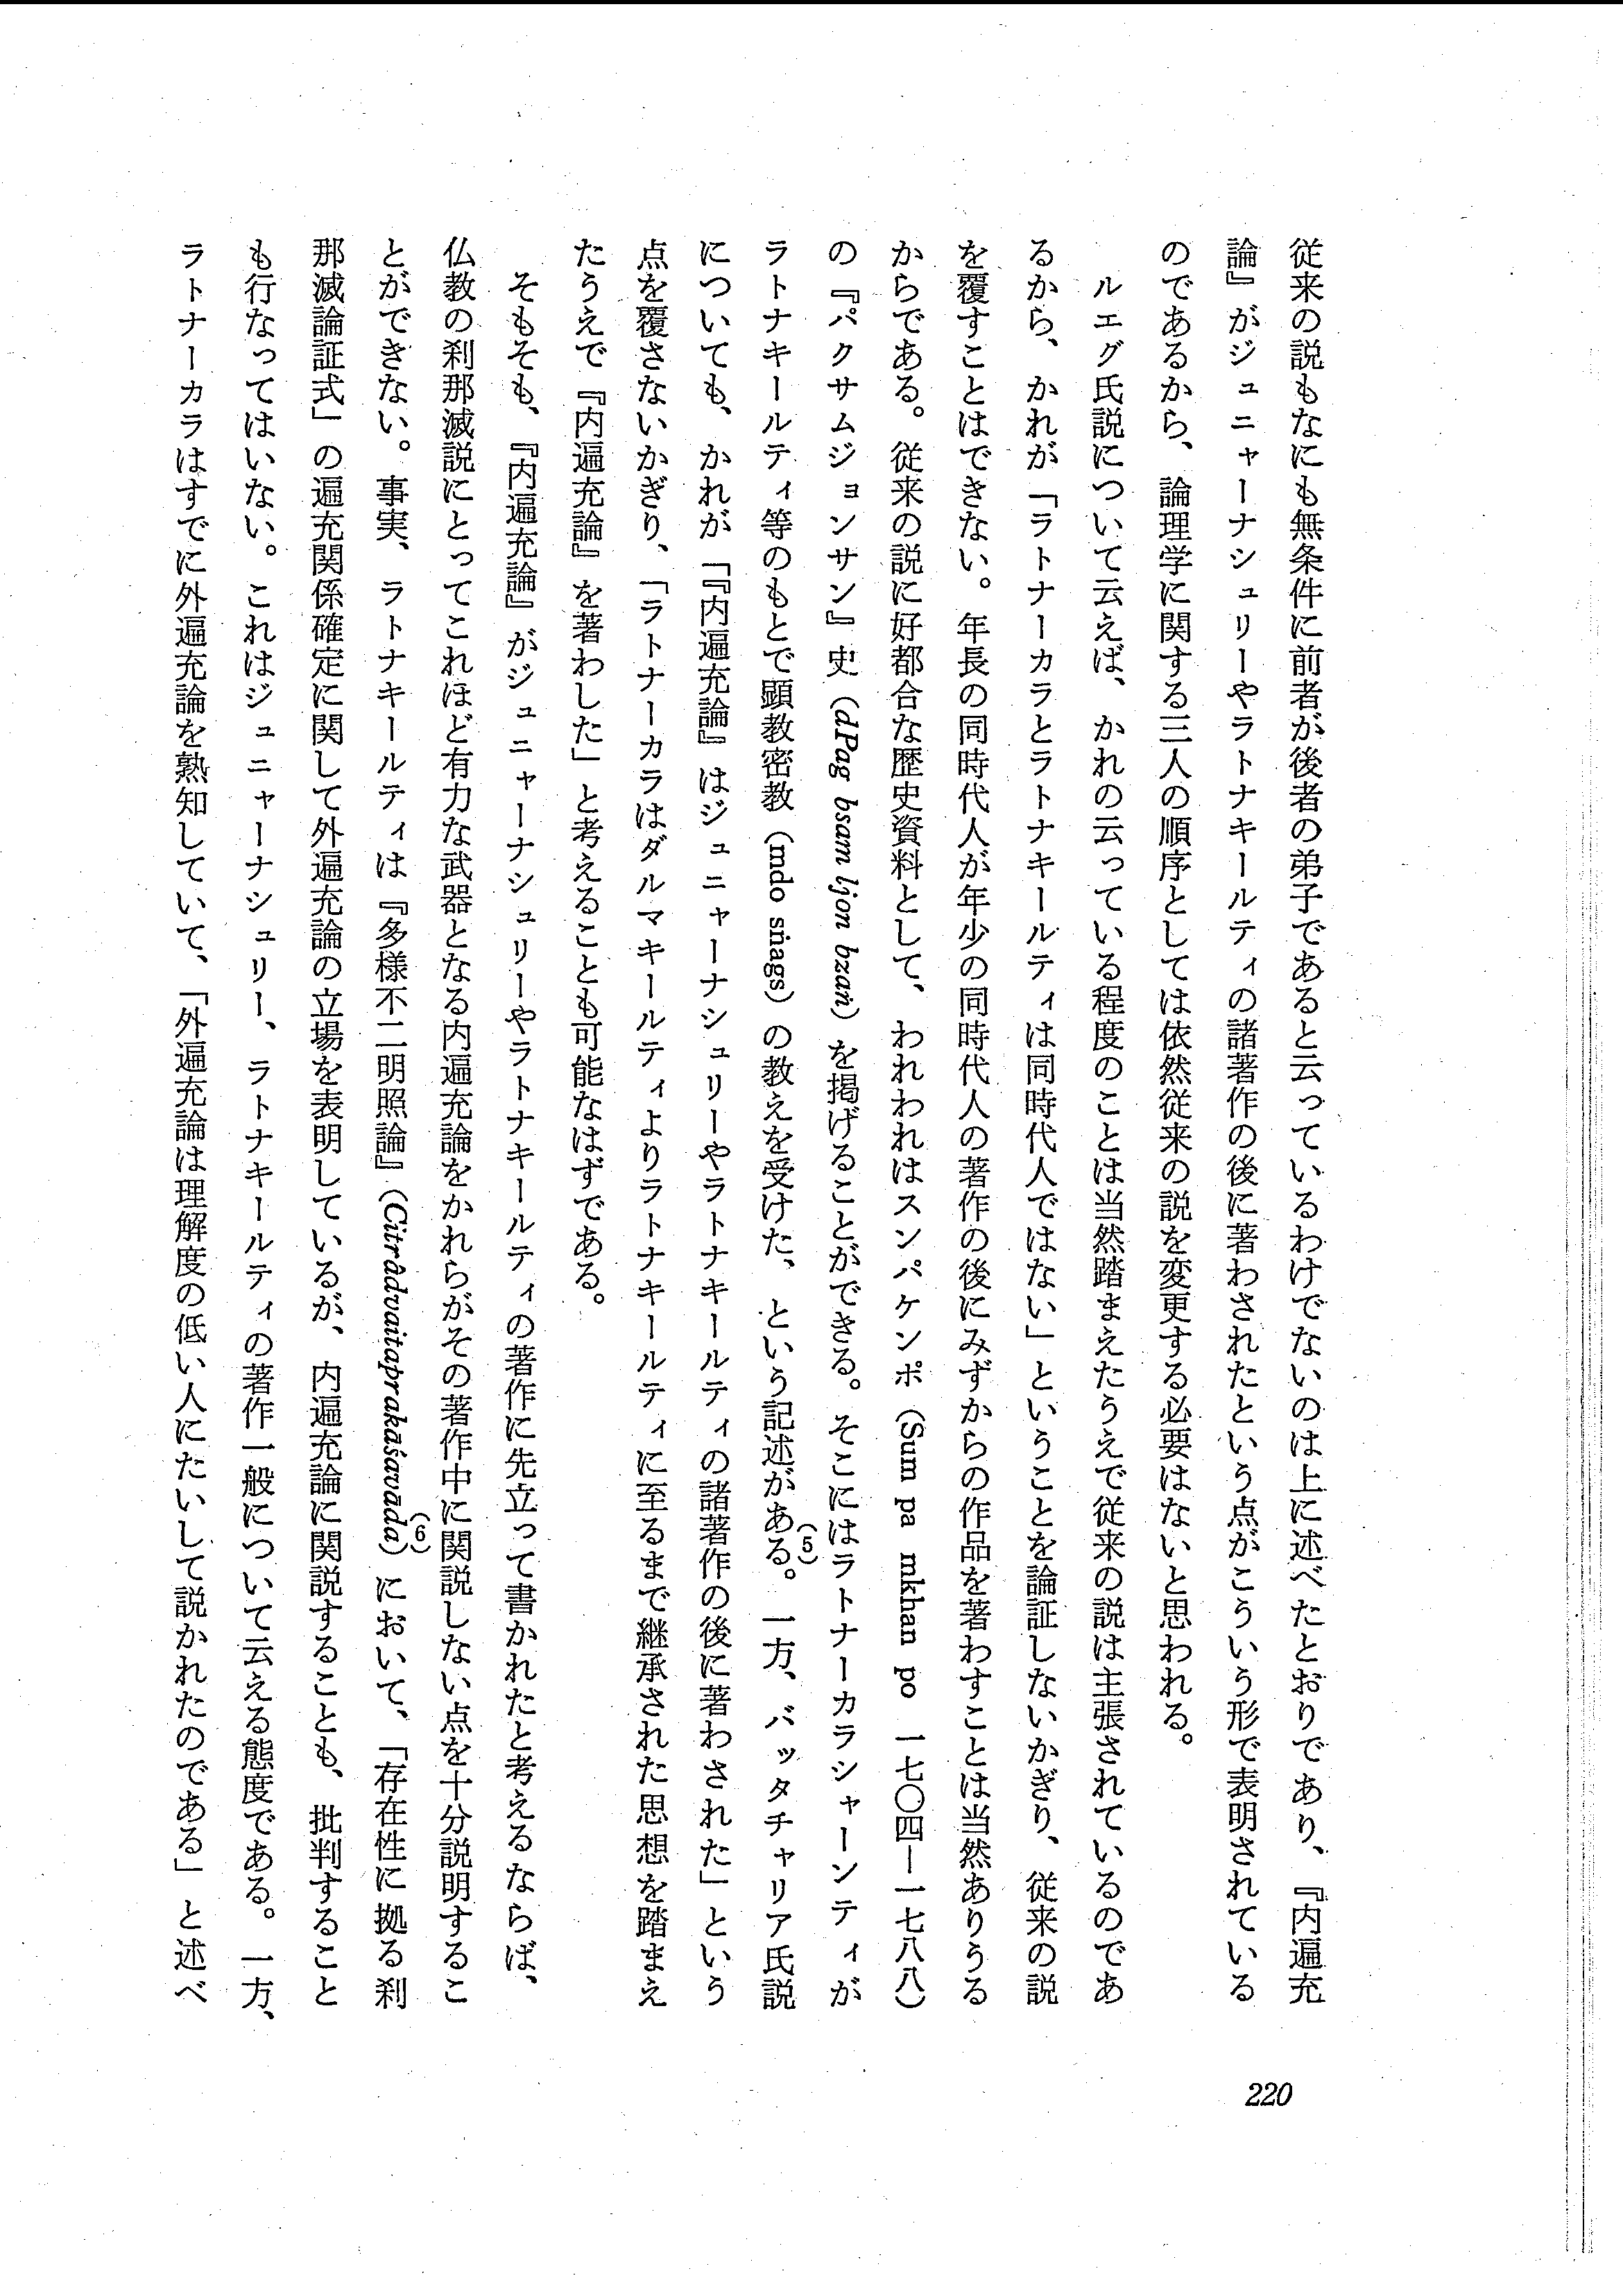 従来の説もなにも無条件に前者が後者の弟子であると云っているわけでないのは上に述べたとおりであり、『内遍充
論』がジュニャーナシュリーやラトナキールティの諸著作の後に著わされたという点がこういう形で表明されている
のであるから、論理学に関する三人の順序としては依然従来の説を変更する必要はないと思われる。
　ルエグ氏説について云えば、かれの云っている程度のことは当然踏まえたうえで従来の説は主張されているのであ
るから、かれが「ラトナーカラとラトナキールティは同時代人ではない」ということを論証しないかぎり、従来の説
を覆すことはできない。年長の同時代人が年少の同時代人の著作の後にみずからの作品を著わすことは当然ありうる
からである。従来の説に好都合な歴史資料として、われわれはスンパケンポ（Sum pa mkhan po 一七〇四—一七八八）
の『パクサムジョンサン』史（dPag bsam ljon bzaṅ）を掲げることができる。そこにはラトナーカラシャーンティが
ラトナキールティ等のもとで顕教密教（mdo sṅags）の教えを受けた、という記述がある。(5)一方、バッタチャリア氏説
についても、かれが「『内遍充論』はジュニャーナシュリーやラトナキールティの諸著作の後に著わされた」という
点を覆さないかぎり、「ラトナーカラはダルマキールティよりラトナキールティに至るまで継承された思想を踏まえ
たうえで『内遍充論』を著わした」と考えることも可能なはずである。
　そもそも、『内遍充論』がジュニャーナシュリーやラトナキールティの著作に先立って書かれたと考えるならば、
仏教の刹那滅説にとってこれほど有力な武器となる内遍充論をかれらがその著作中に関説しない点を十分説明するこ
とができない。事実、ラトナキールティは『多様不二明照論』（Citrâdvaitaprakāśavāda）(6)において、「存在性に拠る刹
那滅論証式」の遍充関係確定に関して外遍充論の立場を表明しているが、内遍充論に関説することも、批判すること
も行なってはいない。これはジュニャーナシュリー、ラトナキールティの著作一般について云える態度である。一方、
ラトナーカラはすでに外遍充論を熟知していて、「外遍充論は理解度の低い人にたいして説かれたのである」と述べ
220